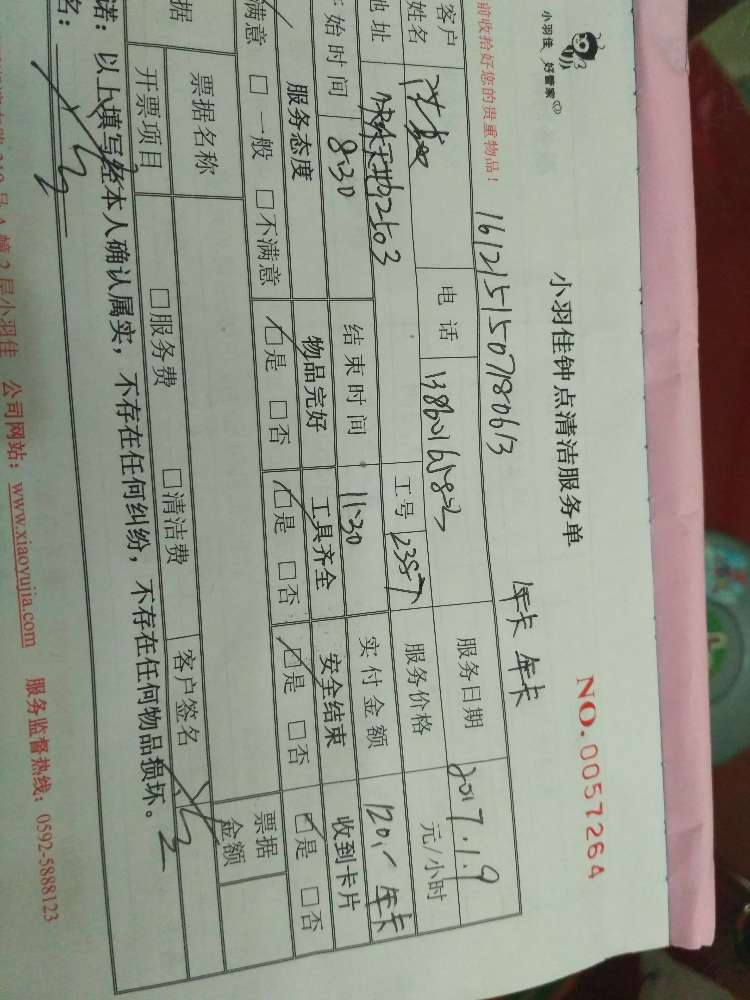 小羽佳 好管家
小羽佳钟点清洁服务单
NO.0057264
前收拾好您的贵重物品！
1612151507180613
年卡 年卡
客户姓名
电话
服务日期 2017.1.9
工号 2357
服务价格 元/小时
地址 2503
开始时间 8:30
结束时间 11:30
实付金额 120,- 年卡
服务态度 物品完好 工具齐全 安全结束 收到卡片
满意 □一般 □不满意 □是 □否 □是 □否 □是 □否 □是 □否
据
票据名称
票据金额
开票项目 □服务费 □清洁费 客户签名
诺：以上填写经本人确认属实，不存在任何纠纷，不存在任何物品损坏。
名：
幢2层小羽佳 公司网站：www.xiaoyujia.com 服务监督热线：0592-5888123